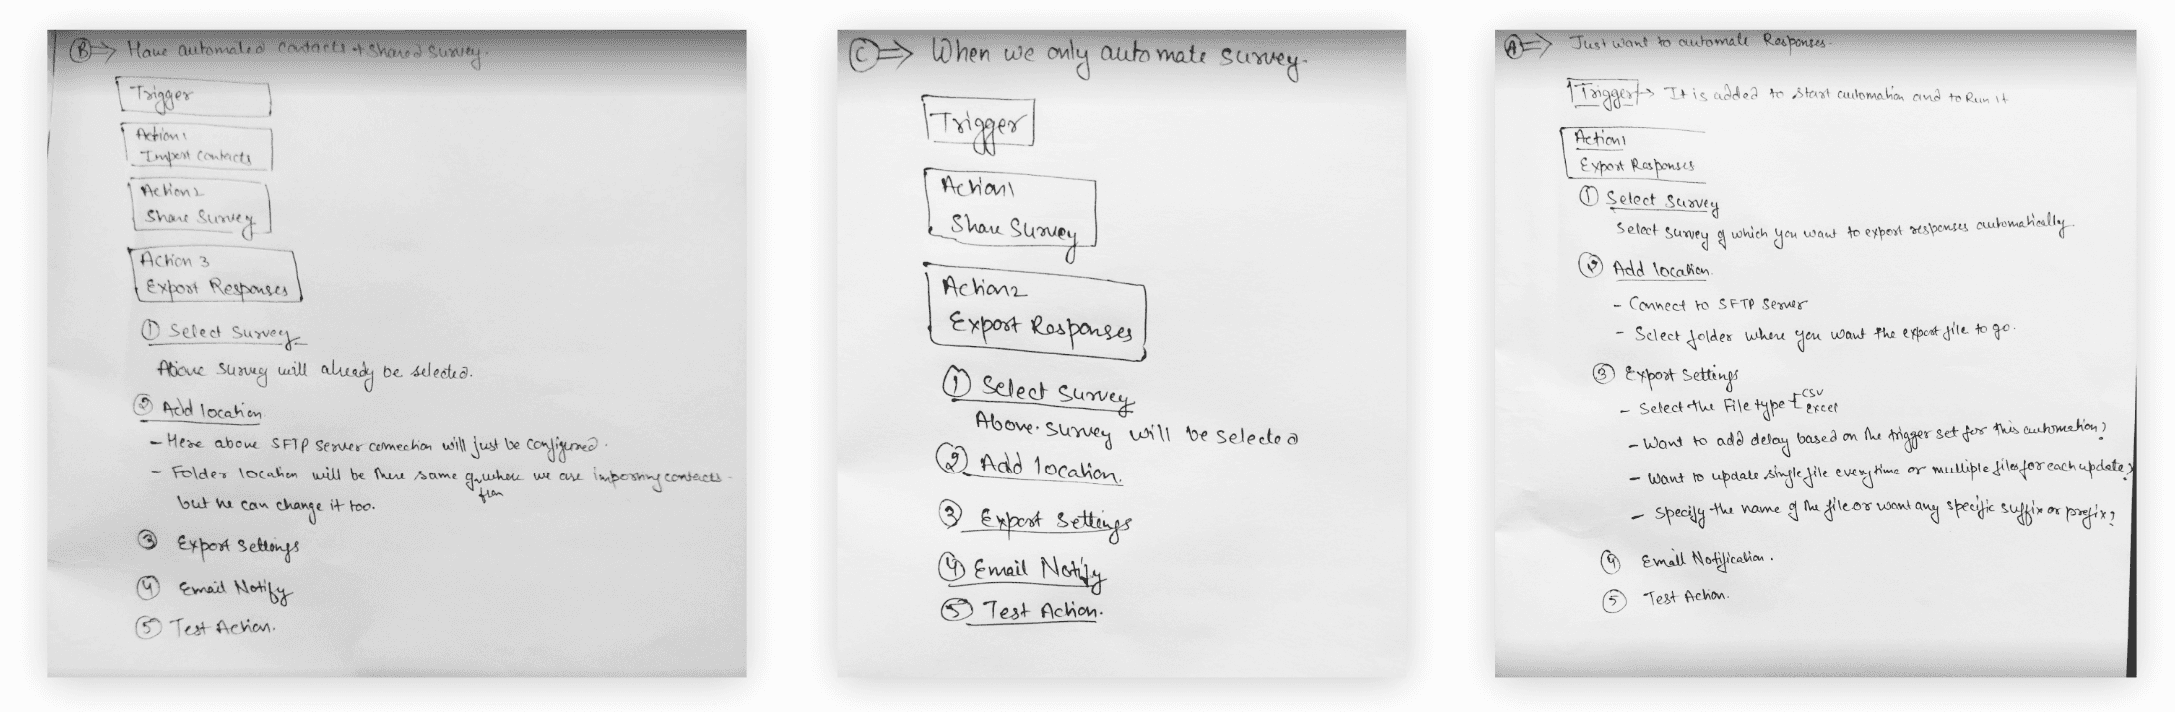 B ⇒ Have automated contacts + Shared Survey.
Trigger
Action 1
Import Contacts
Action 2
Share Survey
Action 3
Export Responses
① Select Survey
Above Survey will already be selected.
② Add location
- Here above SFTP Server connection will just be configured.
- Folder location will be there same as where we are importing contacts
from
but he can change it too.
③ Export Settings
④ Email Notify
⑤ Test Action.
C ⇒ When we only automate survey.
Trigger
Action 1
Share Survey
Action 2
Export Responses
① Select Survey
Above survey will be selected
② Add location.
③ Export Settings
④ Email Notify
⑤ Test Action.
A ⇒ Just want to automate Responses.
Trigger → It is added to start automation and to Run it
Action 1
Export Responses
① Select Survey
Select survey of which you want to export responses automatically.
② Add location.
- Connect to SFTP Server
- Select folder where you want the export file to go.
③ Export Settings
- Select the File type CSV
Excel
- Want to add delay based on the trigger set for this automation?
- Want to update single file everytime or multiple files for each update?
- Specify the name of the file or want any specific suffix or prefix?
④ Email Notification.
⑤ Test Action.